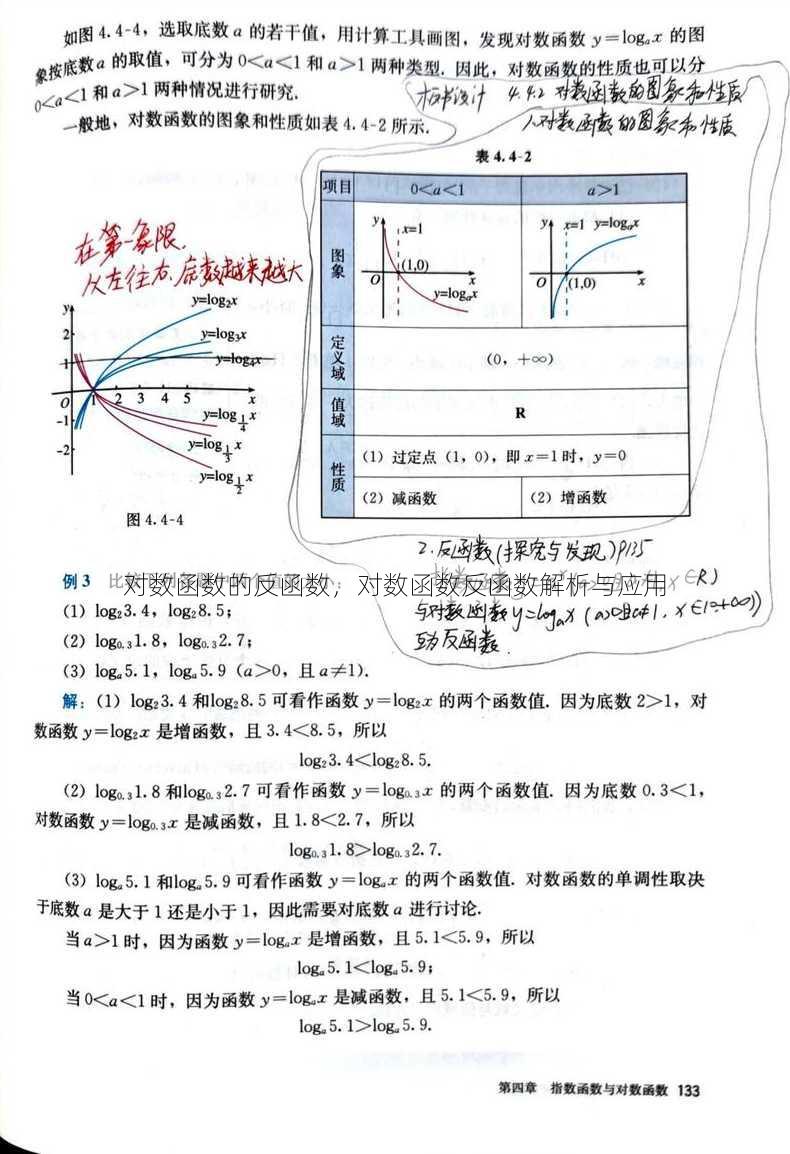 如图 4.4-4，选取底数 a 的若干值，用计算工具画图，发现对数函数 y=logₐx 的图
象按底数 a 的取值，可分为 0<a<1 和 a>1 两种类型. 因此，对数函数的性质也可以分
0<a<1 和 a>1 两种情况进行研究.
板书设计 4.4.2 对数函数的图象和性质
一般地，对数函数的图象和性质如表 4.4-2 所示.
1.对数函数的图象和性质
表 4.4-2
项目 0<a<1 a>1
图象
y x=1 (1,0) O x y=logₐx
y x=1 y=logₐx (1,0) O x
定义域 (0, +∞)
值域 R
性质
(1) 过定点 (1, 0)，即 x=1 时，y=0
(2) 减函数 (2) 增函数
在第一象限.
从左往右.底数越来越大
y=log₂x
y=log₃x
y=log₄x
y 2 1 O 1 2 3 4 5 x -1 -2
y=log_{1/4} x
y=log_{1/3} x
y=log_{1/2} x
图 4.4-4
2.反函数(探究与发现)P135
例 3
对数函数的反函数，对数函数反函数解析与应用
x∈R)
(1) log₂3.4，log₂8.5；
与对数函数 y=logₐx (a>0且a≠1, x∈(0,+∞))
(2) log₀.₃1.8，log₀.₃2.7；
互为反函数.
(3) logₐ5.1，logₐ5.9 (a>0，且 a≠1).
解：(1) log₂3.4 和log₂8.5 可看作函数 y=log₂x 的两个函数值. 因为底数 2>1，对
数函数 y=log₂x 是增函数，且 3.4<8.5，所以
log₂3.4<log₂8.5.
(2) log₀.₃1.8 和log₀.₃2.7 可看作函数 y=log₀.₃x 的两个函数值. 因为底数 0.3<1，
对数函数 y=log₀.₃x 是减函数，且 1.8<2.7，所以
log₀.₃1.8>log₀.₃2.7.
(3) logₐ5.1 和logₐ5.9 可看作函数 y=logₐx 的两个函数值. 对数函数的单调性取决
于底数 a 是大于 1 还是小于 1，因此需要对底数 a 进行讨论.
当 a>1 时，因为函数 y=logₐx 是增函数，且 5.1<5.9，所以
logₐ5.1<logₐ5.9；
当 0<a<1 时，因为函数 y=logₐx 是减函数，且 5.1<5.9，所以
logₐ5.1>logₐ5.9.
第四章 指数函数与对数函数 133